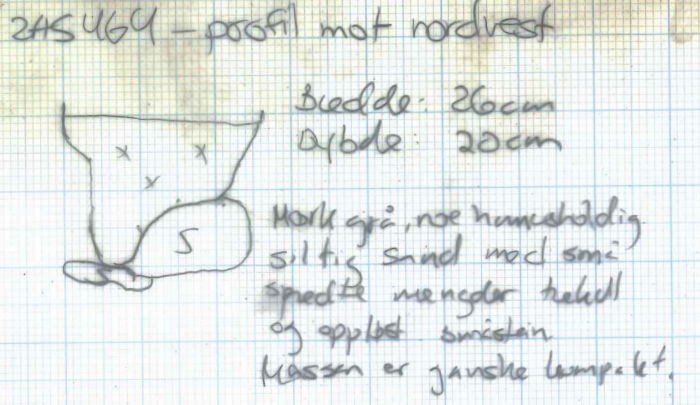 2AS464 - profil mot nordvest
Bredde: 26cm
Dybde: 20cm
S
Mørk grå, noe humusholdig
siltig sand med små
spredte mengder trekull
og oppløst småstein
Massen er ganske kompakt.